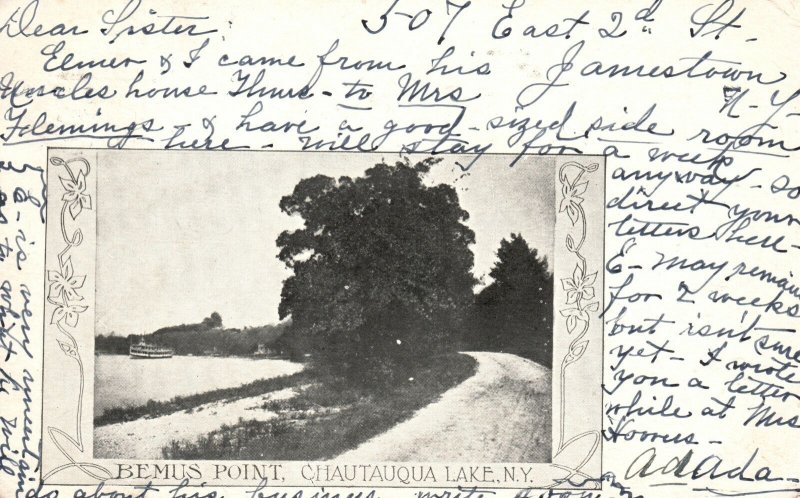 Dear Sister, 507 East 2d St.
Elmer & I came from his Jamestown
Uncles house Thurs - to Mrs N-Y-
Flemings - & have a good-sized side room
here - will stay for a week
anyway - so
direct your
letters here -
E - may remain
for 2 weeks
but isn't sure
yet - I wrote
you a letter
while at Mrs

Adada -
E - is very uncertain
as to what he will
do about his business write soon
BEMUS POINT, CHAUTAUQUA LAKE, N.Y.